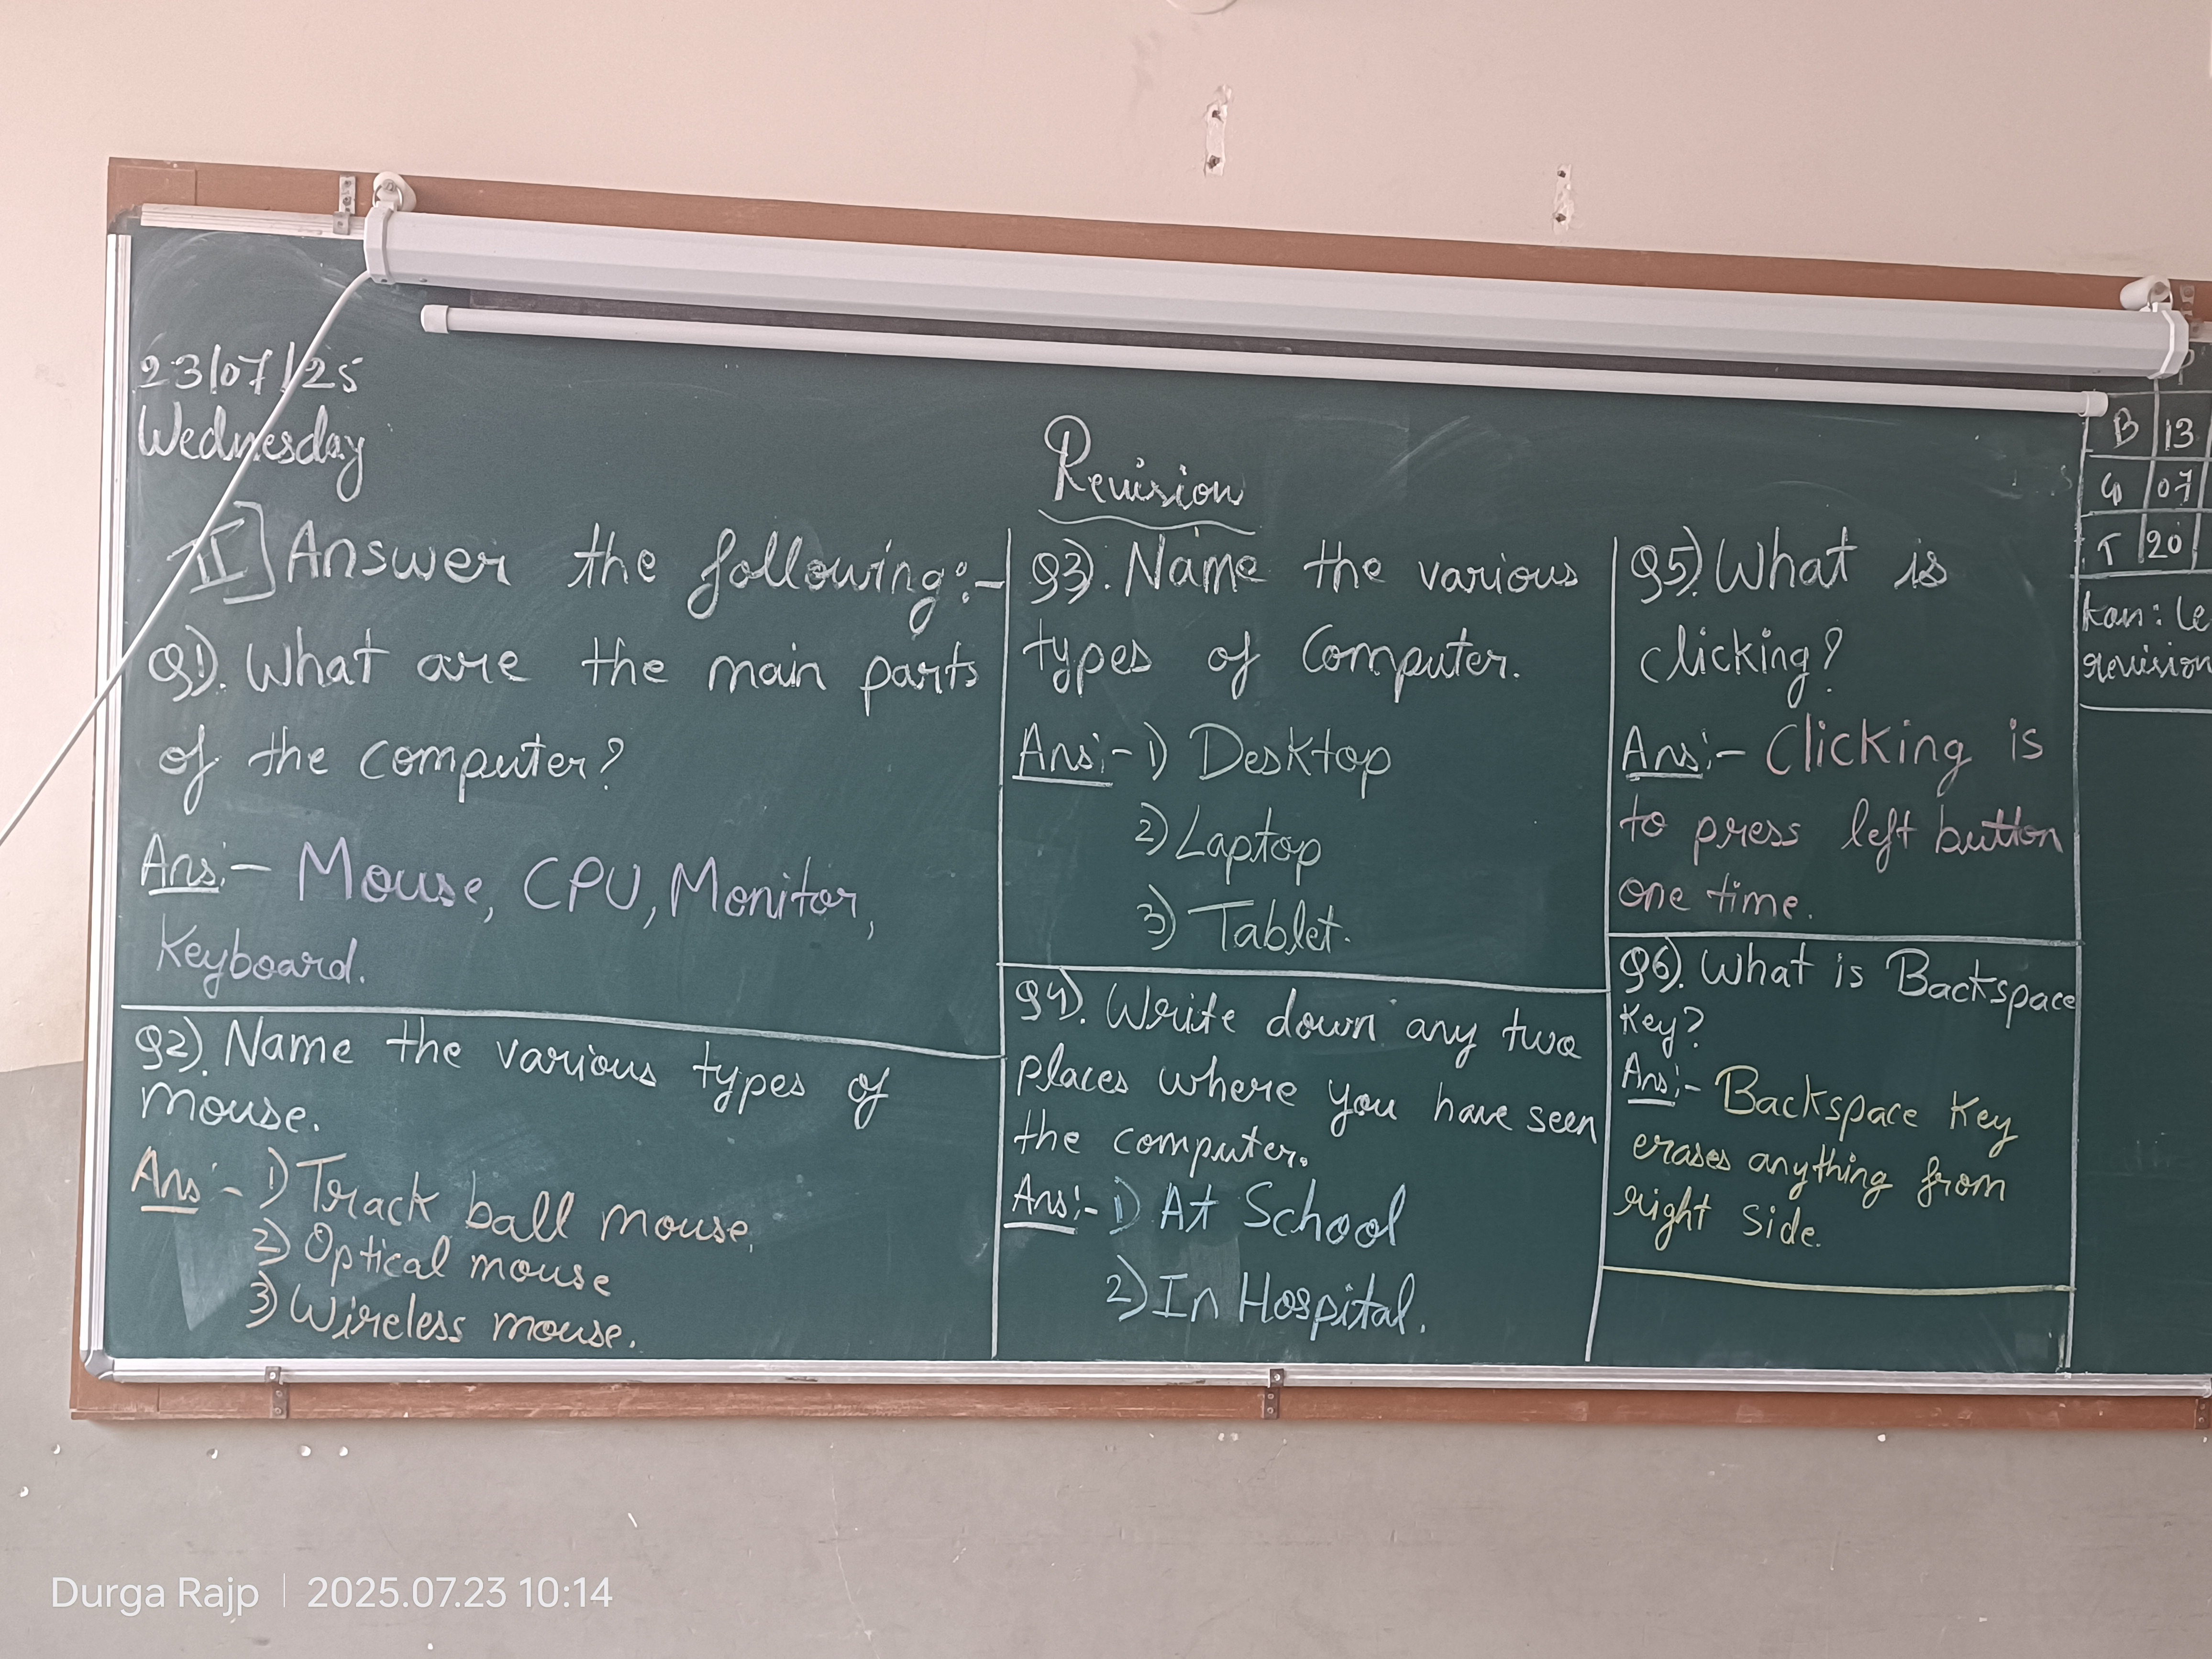 23/07/25
Wednesday
Revision
II] Answer the following:-
Q1). What are the main parts
of the computer?
Ans:- Mouse, CPU, Monitor,
Keyboard.
Q2). Name the various types of
mouse.
Ans:- 1) Track ball mouse.
2) Optical mouse
3) Wireless mouse.
Q3). Name the various
types of Computer.
Ans:- 1) Desktop
2) Laptop
3) Tablet.
Q4). Write down any two
places where you have seen
the computer.
Ans:- 1) At School
2) In Hospital.
Q5). What is
clicking?
Ans:- Clicking is
to press left button
one time.
Q6). What is Backspace
Key?
Ans:- Backspace Key
erases anything from
right side.
B 13
G 07
T 20
Kan:
revision
Durga Rajp | 2025.07.23 10:14